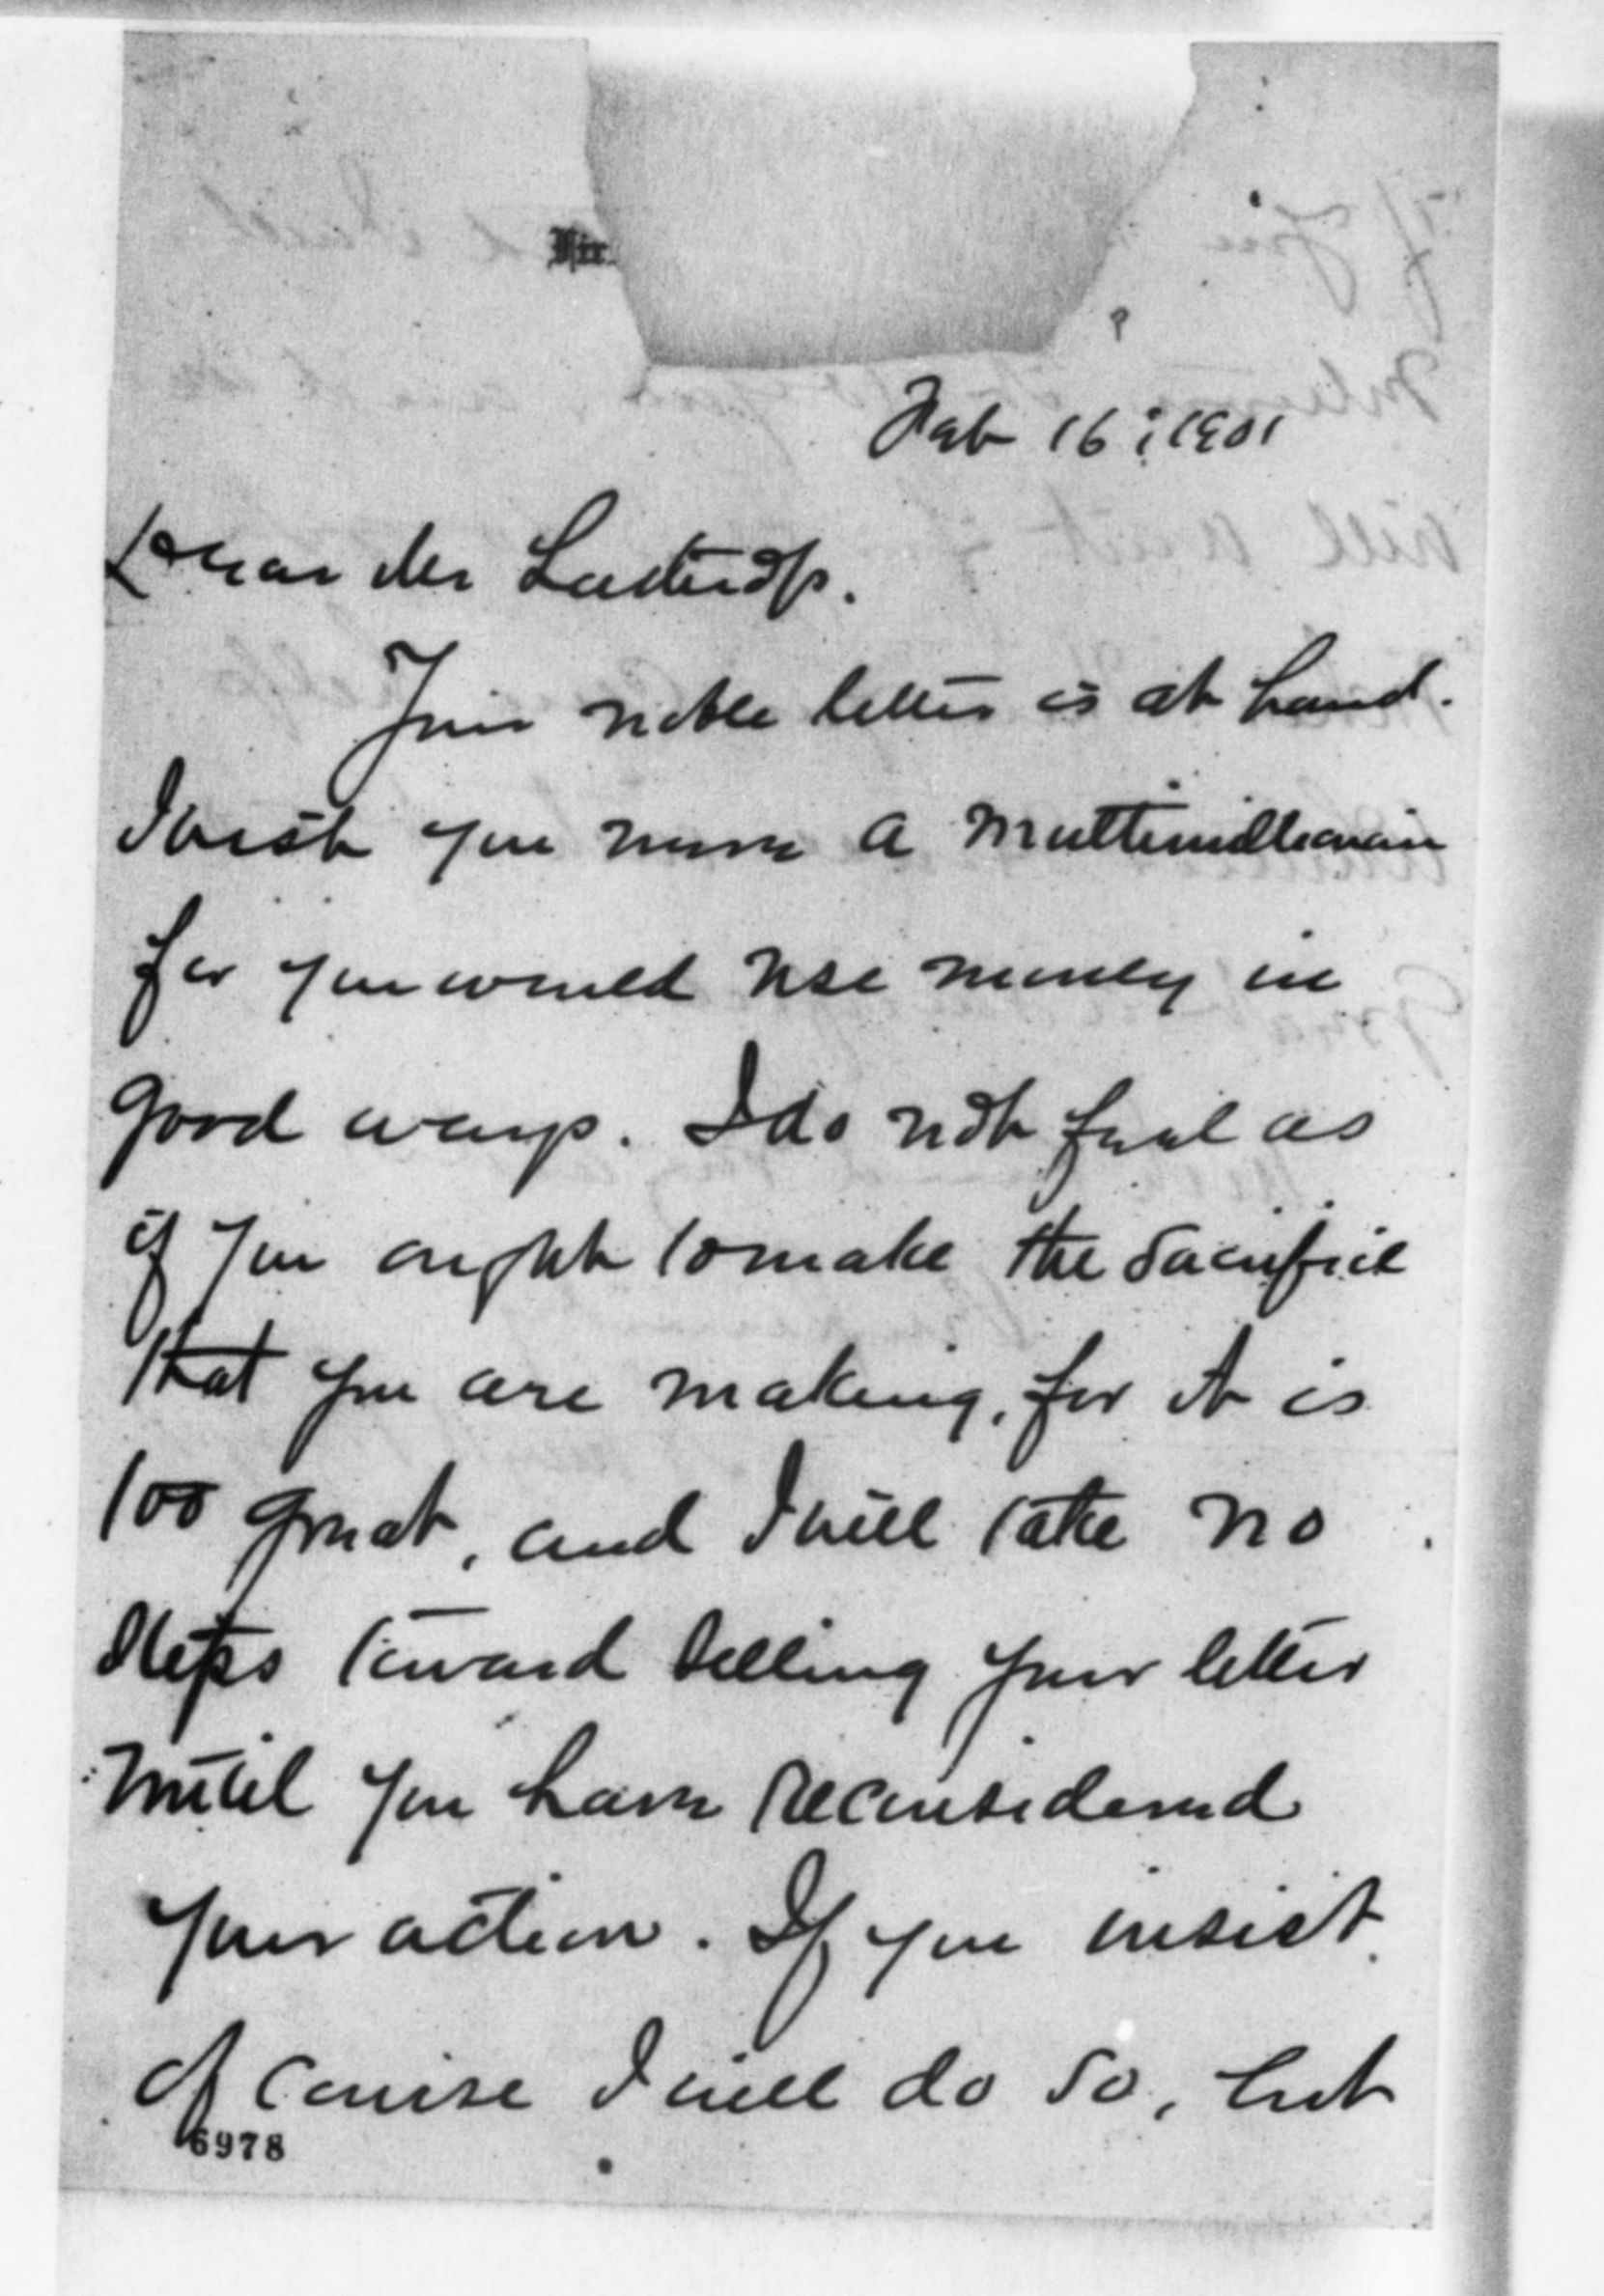 Feb 16, 1901
Dear Mr Lathrop.
Your noble letter is at hand.
I wish you were a multimillionaire
for you would use money in
good ways. I do not feel as
if you ought to make the sacrifice
that you are making, for it is
too great, and I will take no
steps toward selling your letter
until you have reconsidered
your action. If you insist
of course I will do so, but
6978